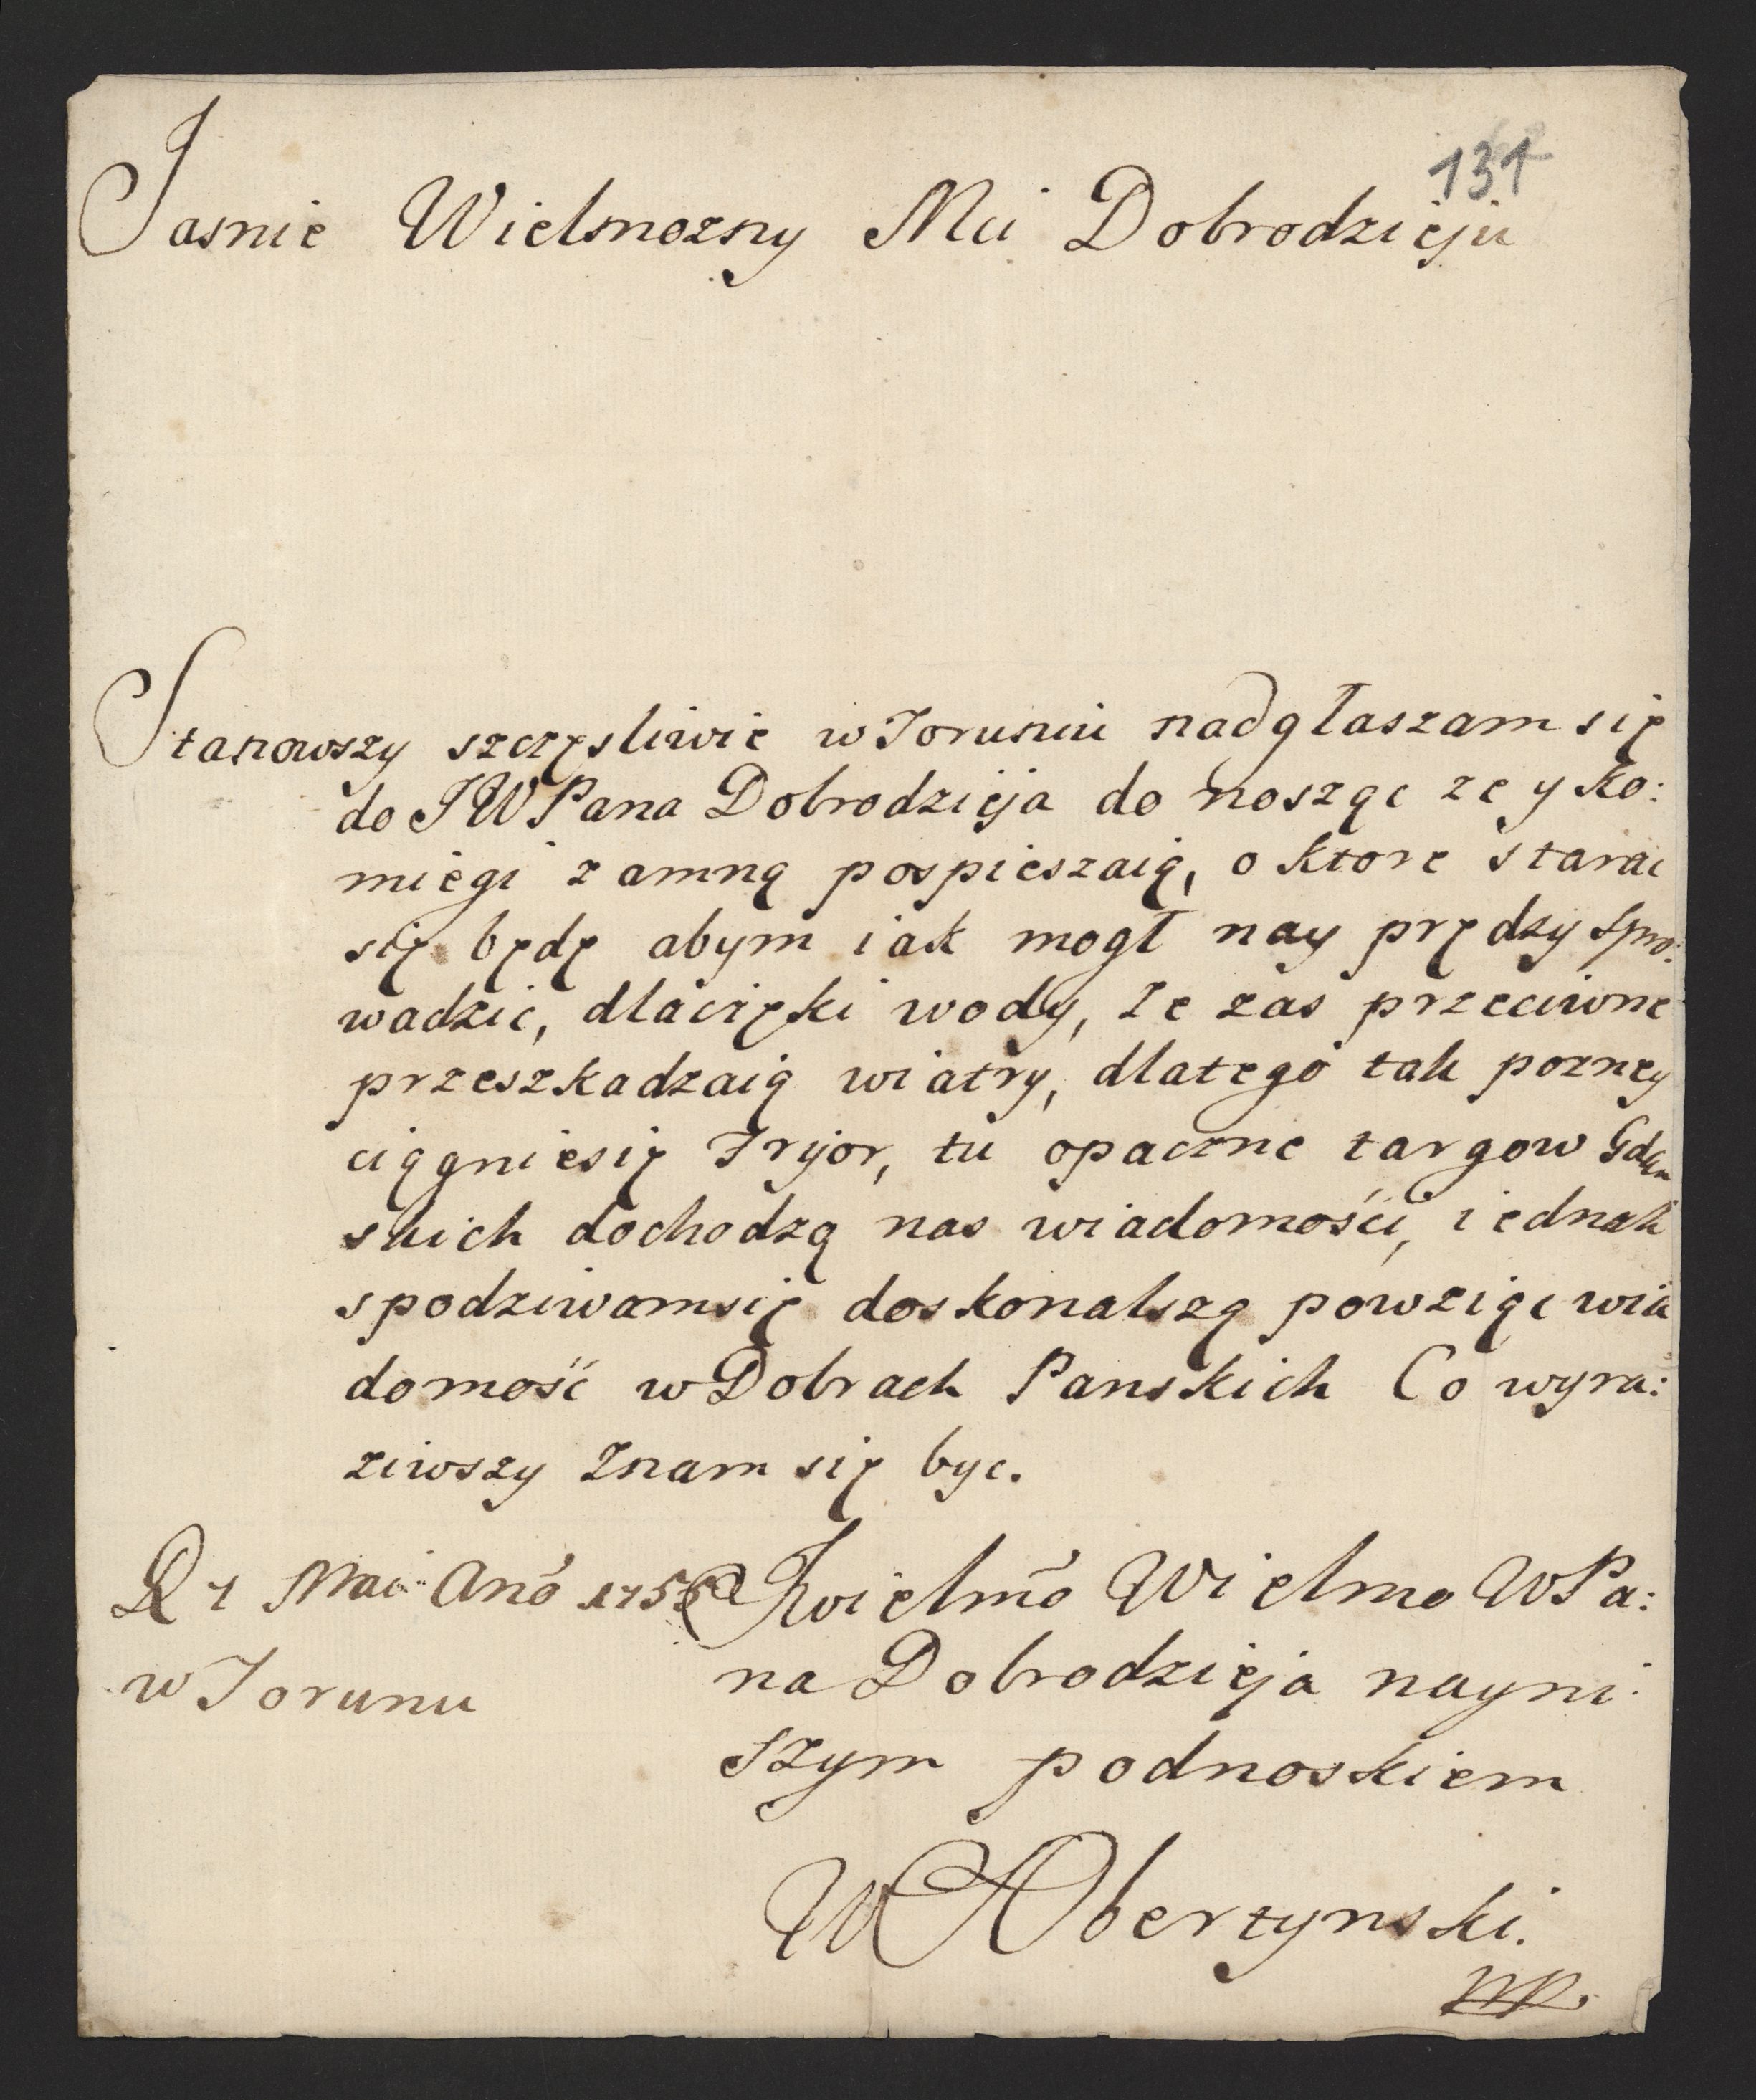 131
Jasnie Wielmozny Mci Dobrodzieju
Stanowszy szczęsliwie w Toruniu nadgłaszam się
do JWPana Dobrodzieja do noszęc ze y Ko:
miegi zamną pospieszaią, o Ktore starac
się będę abym iak mogł nay prędzy spro:
wadzic, dlaciężki wody, że zas przeciwne
przeszkadzaią wiatry, dlatego tak pozney
ciągniesię Fryor, tu opaczne targow Gdan
skich dochodzą nas wiadomości, iednak
spodziwamsię doskonalszą powziąc wia
domość w Dobrach Panskich Co wyra:
ziwszy znam się byc.
D 7 Mai Anō JWielmō Wielmo WPa:
w Torunu na Dobrodzieja nayni:
szym podnoskiem
W Obertynski.
mp.